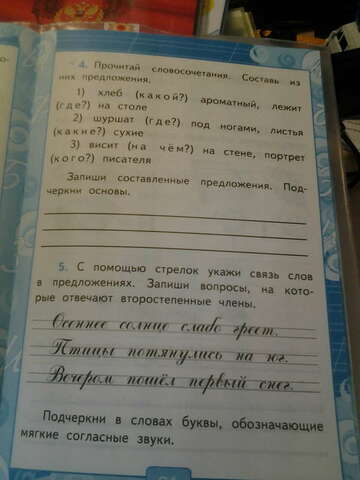 4. Прочитай словосочетания. Составь из
них предложения.
1) хлеб (какой?) ароматный, лежит
(где?) на столе
2) шуршат (где?) под ногами, листья
(какие?) сухие
3) висит (на чём?) на стене, портрет
(кого?) писателя
Запиши составленные предложения. Под-
черкни основы.
5. С помощью стрелок укажи связь слов
в предложениях. Запиши вопросы, на кото-
рые отвечают второстепенные члены.
Осеннее солнце слабо греет.
Птицы потянулись на юг.
Вечером пошёл первый снег.
Подчеркни в словах буквы, обозначающие
мягкие согласные звуки.